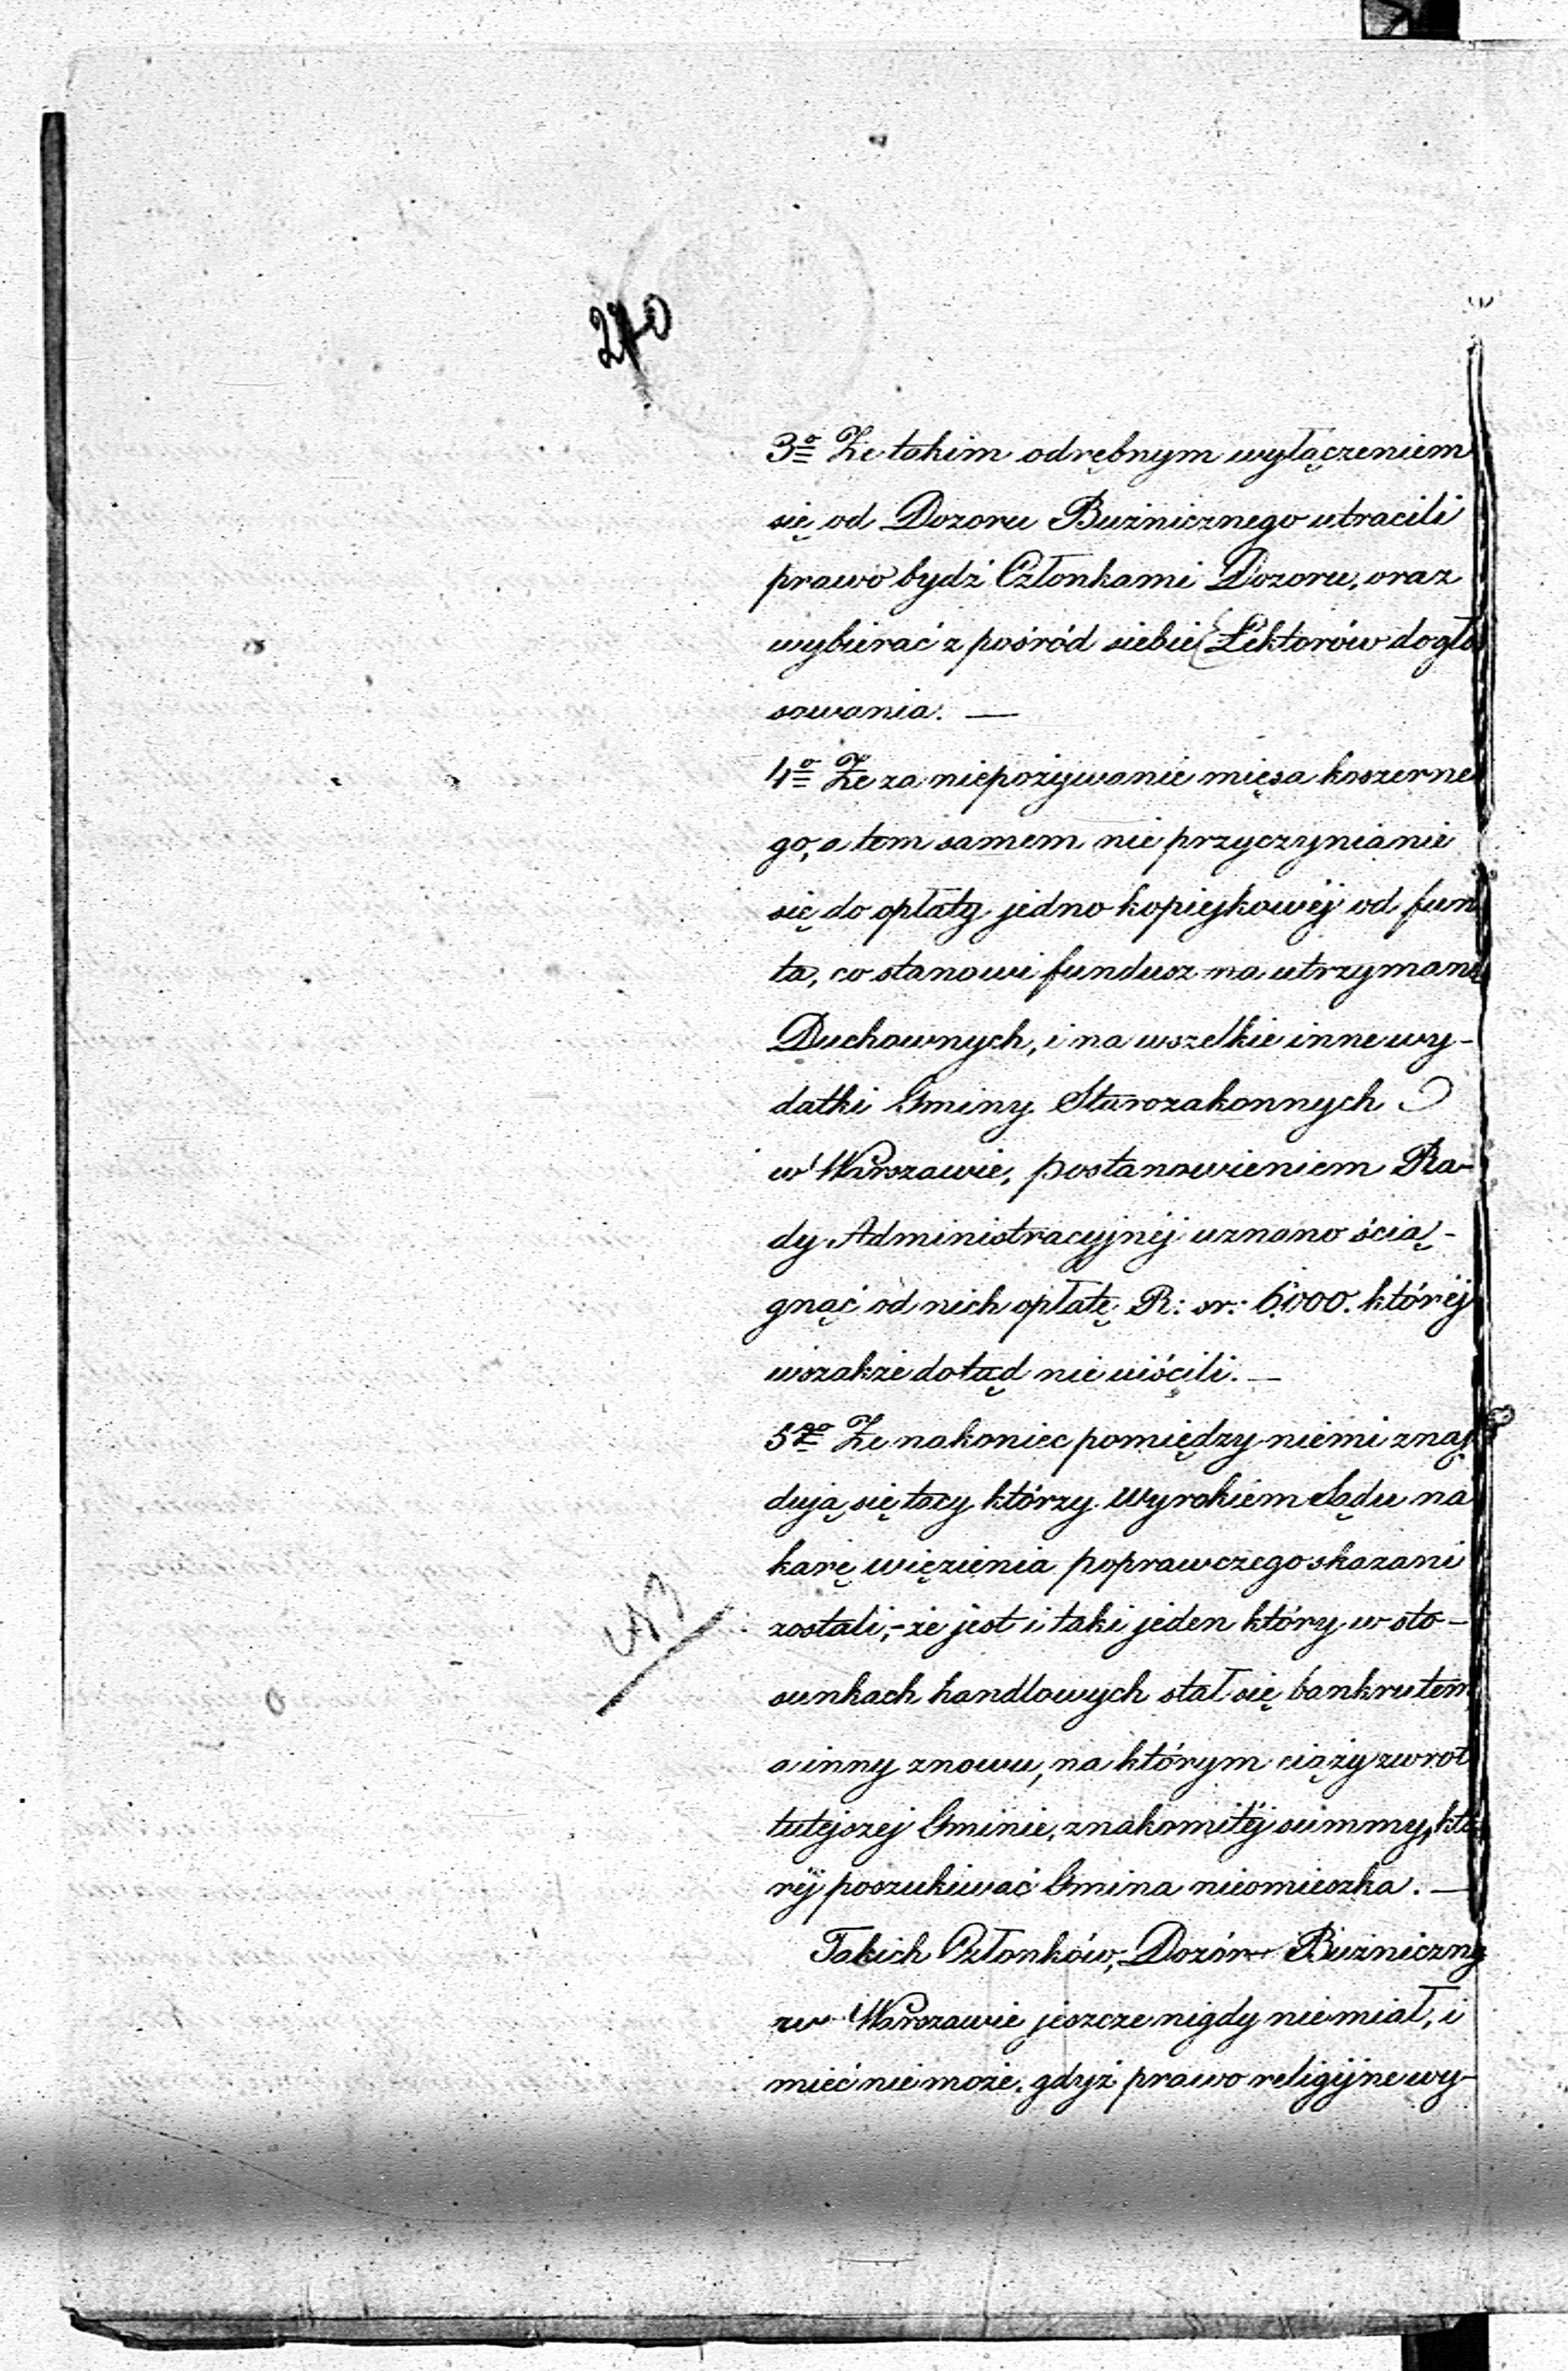 240
3º Że takim odrębnym wyłączeniem
się od Dozoru Bużnicznego utracili
prawo bydź Członkami Dozoru, oraz
wybierać z pośród siebie Lektorów do gło
sowania. —
4º Że za niepożywanie mięsa koszerne
go, a tem samem nie przyczynianie
się do opłaty jedno kopiejkowéj od fun
ta, co stanowi fundusz na utrzymanie
Duchownych, i na wszelkie inne wy-
datki Gminy Starozakonnych
w Warszawie, postanowieniem Ra-
dy Administracyjnéj uznano ścią-
gnąć od nich opłatę R: sr: 6,000. któréj
wszakże dotąd nie uiścili. —
5to Że nakoniec pomiędzy niemi znaj
dują się tacy którzy Wyrokiem Sądu na
karę więzienia poprawczego skazani
zostali, - że jest i taki jeden który w sto-
sunkach handlowych stał się bankrutem
a inny znowu, na którym ciąży zwrot
tutejszej Gminie, znakomitéj summy, któ
réj poszukiwać Gmina nieomieszka. —
Takich Członków, Dozór Bużniczny
w Warszawie jeszcze nigdy nie miał, i
mieć nie może, gdyż prawo religijne wy-